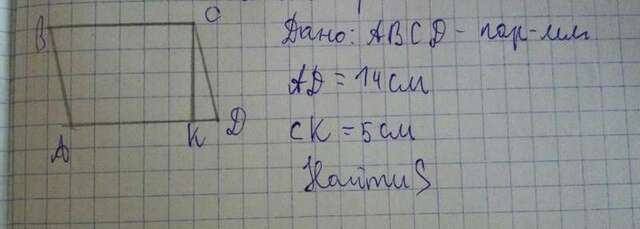 B C
Дано: ABCD - пар-мм
AD = 14 см
CK = 5 см
Найти S
A K D